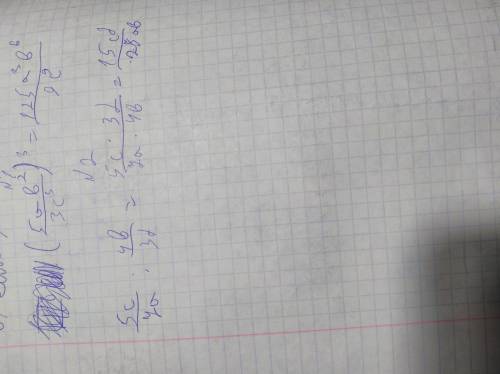 №1
(5ab²/3c³)³ = 125a³b⁶/9c⁹
№2
5c/7a : 4b/3d = 5c · 3d/7a · 4b = 15cd/28ab